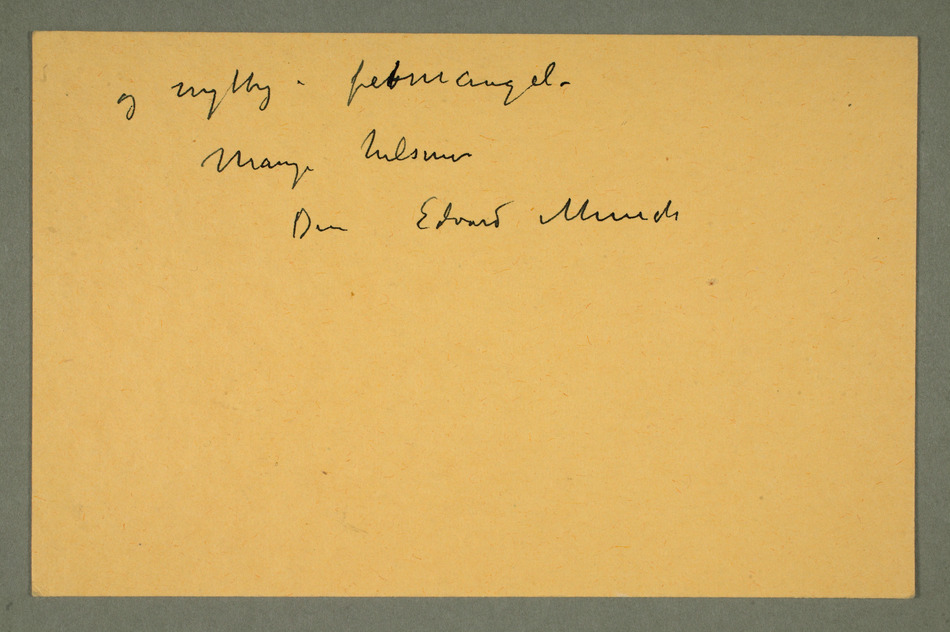 og nyttig i fetmangel.
Mange hilsener
Din Edvard Munch